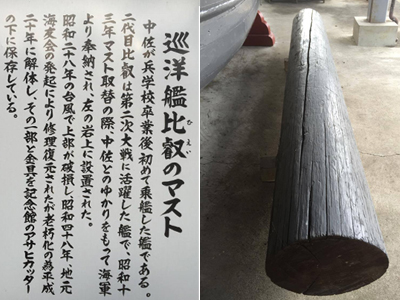 巡洋艦比叡のマスト
ひえい
中佐が兵学校卒業後初めて乗艦した艦である。
二代目比叡は第二次大戦に活躍した艦で、昭和十
三年マスト取替の際、中佐とのゆかりをもって海軍
より奉納され、左の岩上に設置された。
昭和二十八年の台風で上部が破損し昭和四十八年、地元
海友会の発起により修理復元されたが老朽化の為平成
二十年に解体し、その一部と金具を記念館のアサヒカッター
の下に保存している。